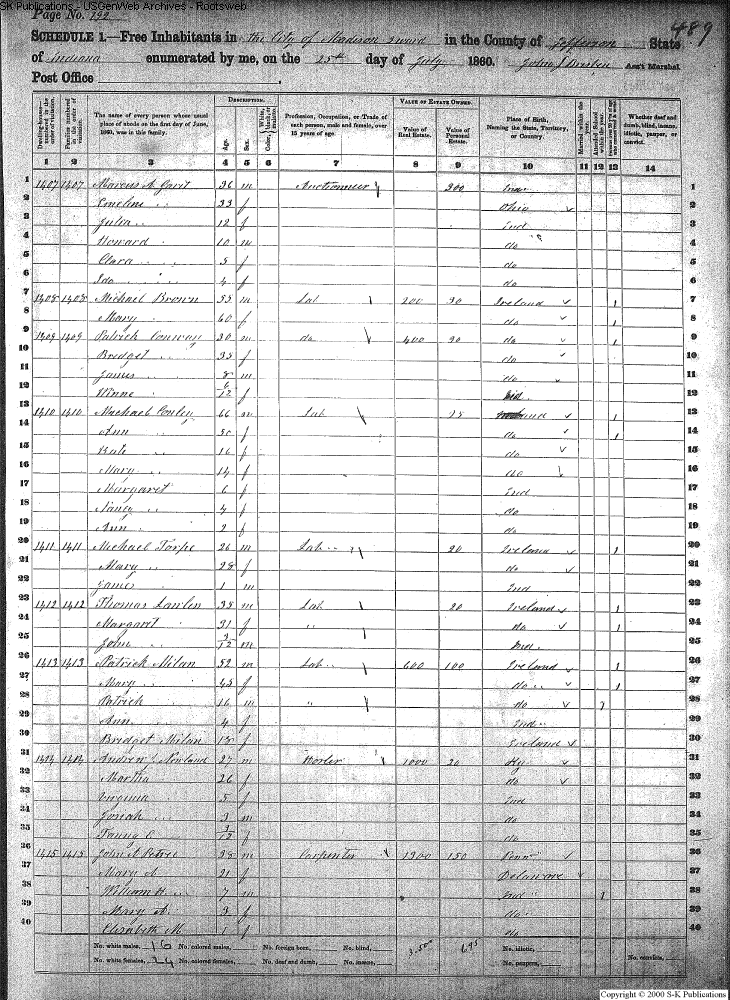 S-K Publications - USGenWeb Archives - Rootsweb
Page No. 192
489
SCHEDULE 1.—Free Inhabitants in The City of Madison ward in the County of Jefferson State
of Indiana enumerated by me, on the 25th day of July 1860. John J Ass't Marshal.
Post Office
Dwelling-houses—numbered in the order of visitation.
Families numbered in the order of visitation.
The name of every person whose usual place of abode on the first day of June, 1860, was in this family.
DESCRIPTION.
Age.
Sex.
Color, White, black, or mulatto.
Profession, Occupation, or Trade of each person, male and female, over 15 years of age.
VALUE OF ESTATE OWNED.
Value of Real Estate.
Value of Personal Estate.
Place of Birth, Naming the State, Territory, or Country.
Married within the year.
Attended School within the year.
Whether deaf and dumb, blind, insane, idiotic, pauper, or convict.
1 2 3 4 5 6 7 8 9 10 11 12 13 14
1 1407 1407 Marcus A. 36 m Auctioneer 300 Ind 1
2 Emeline " 33 f Ohio 2
3 Julia " 12 f Ind 3
4 Howard 10 m do 4
5 Clara 5 f do 5
6 Ida 4 f do 6
7 1408 1408 Michael Brown 55 m Lab 200 30 Ireland 1 7
8 Mary 60 f do 1 8
9 1409 1409 Patrick Conway 30 m do 400 30 do 1 9
10 Bridget 35 f do 10
11 James 8 m do 11
12 Winne 6/12 f Ind 12
13 1410 1410 Michael Conley 66 m Lab 25 1 13
14 Ann 50 f do 1 14
15 Kate 16 f do 15
16 Mary 14 f do 16
17 Margaret 6 f Ind 17
18 Nancy 4 f do 18
19 Ann 2 f do 19
20 1411 1411 Michael Torpe 26 m Lab 20 Ireland 1 20
21 Mary 28 f do 21
22 James 1 m Ind 22
23 1412 1412 Thomas Lawlen 38 m Lab 20 Ireland 1 23
24 Margaret 31 f " do 1 24
25 John 3/12 m Ind. 25
26 1413 1413 Patrick Milan 52 m Lab 600 100 Ireland 1 26
27 Mary 45 f do 1 27
28 Patrick 16 m " do 1 28
29 Ann 4 f Ind 29
30 Bridget Milan f Ireland 30
31 1414 1414 Andrew Newland 27 m 1000 20 Ky 31
32 Martha 26 f do 32
33 Virginia 5 f Ind 33
34 Josiah 3 m do 34
35 Fanny C 3/12 f do 35
36 1415 1415 John 38 m Carpenter 1300 150 Penn 36
37 Mary A 31 f Delaware 37
38 William H 7 m Ind 1 38
39 Mary A. 3 f do 39
40 Elizabeth M 1 f do 40
No. white males, 16 No. colored males, No. foreign born, No. blind, 3.500 695 No. idiotic,
No. white females, 24 No. colored females, No. deaf and dumb, No. insane, No. paupers, No. convicts,
Copyright © 2000 S-K Publications